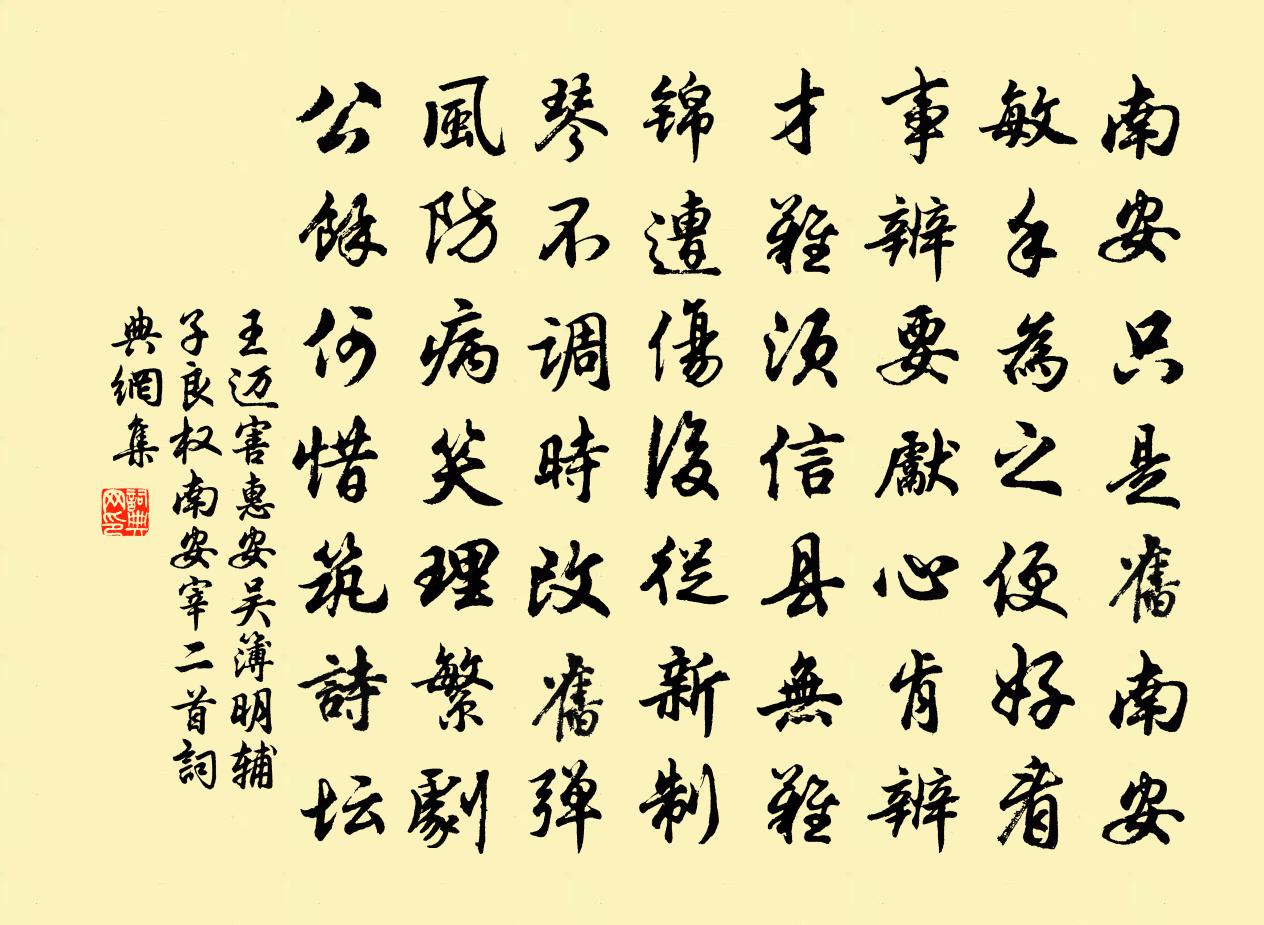 南安只是舊南安
敏手為之便好看
事辦要獻心肯辦
才難須信县無難
錦遭傷後從新制
琴不調時改舊弹
風防病笑理繁劇
公餘何惜筑詩坛
王迈害惠安吴簿明辅
子良权南安宰二首詞
典網集
詞典网印